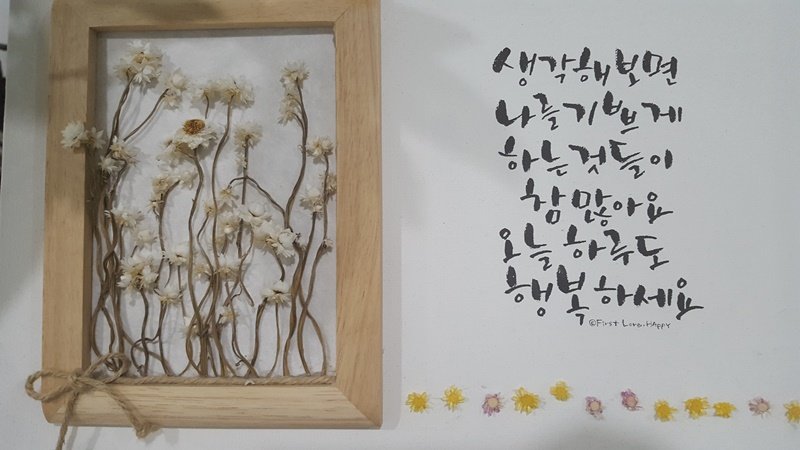 생각해보면
나를기쁘게
하는것들이
참많아요
오늘하루도
행복하세요
©First Love.HAppy